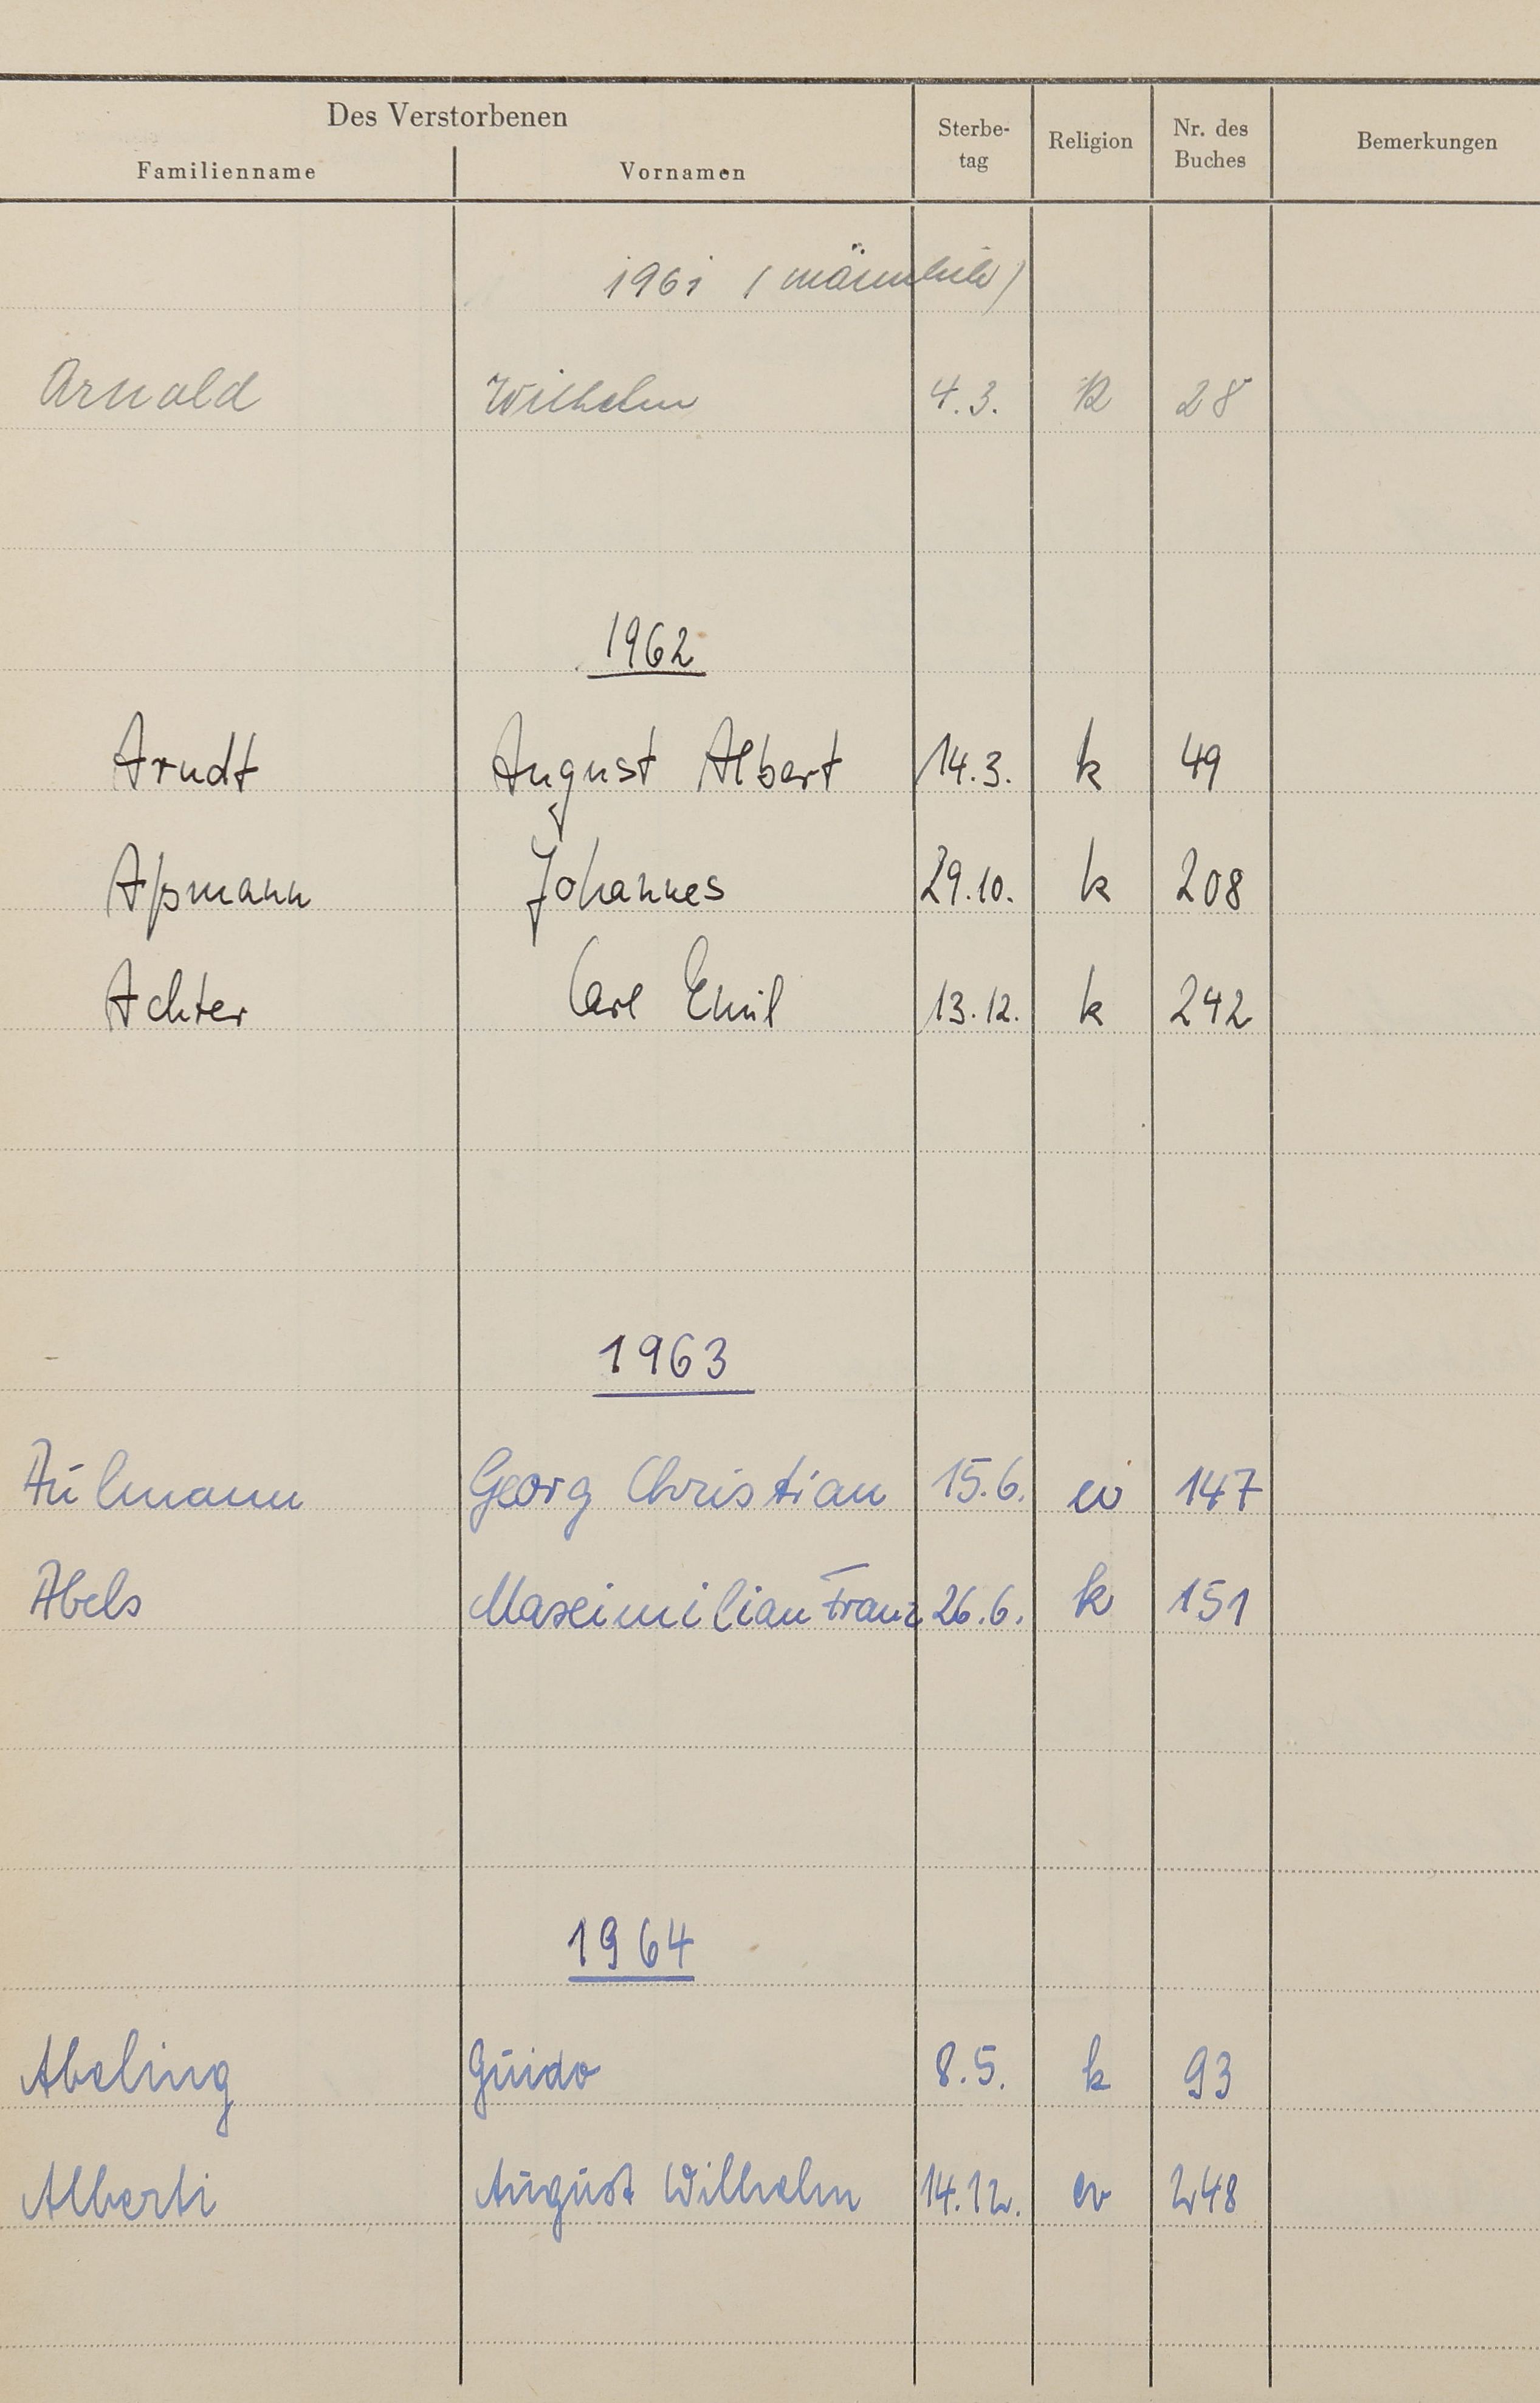 Des Verstorbenen
Familienname Vornamen Sterbe-tag Religion Nr. des Buches Bemerkungen
1961 (männlich)
Arnold Wilhelm 4.3. k 28
1962
Arndt August Albert 14.3. k 49
Aßmann Johannes 29.10. k 208
Achter Carl Emil 13.12. k 242
1963
Aulmann Georg Christian 15.6. ev 147
Abels Maximilian Franz 26.6. k 151
1964
Abeling Guido 8.5. k 93
Alberti August Wilhelm 14.12. ev 248